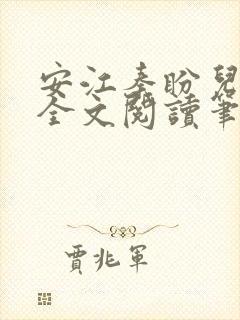 安江秦盼兒
全文閱讀筆
賈兆軍